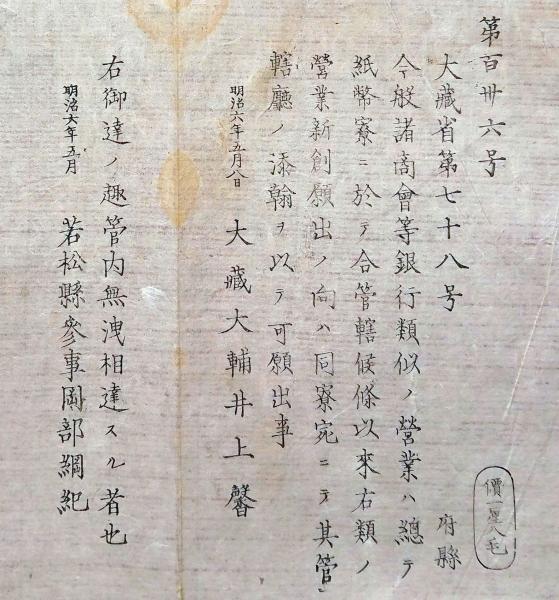 第百卅六号
大藏省第七十八号
府縣
今般諸商會等銀行類似ノ營業ハ總テ
紙幣寮ニ於テ合管轄候條以來右類ノ
營業新創願出ノ向ハ同寮宛ニテ其管
轄廳ノ添翰ヲ以テ可願出事
明治六年五月八日
大藏大輔井上馨
右御達ノ趣管内無洩相達スル者也
明治六年五月
若松縣參事岡部綱紀
價一里八毛